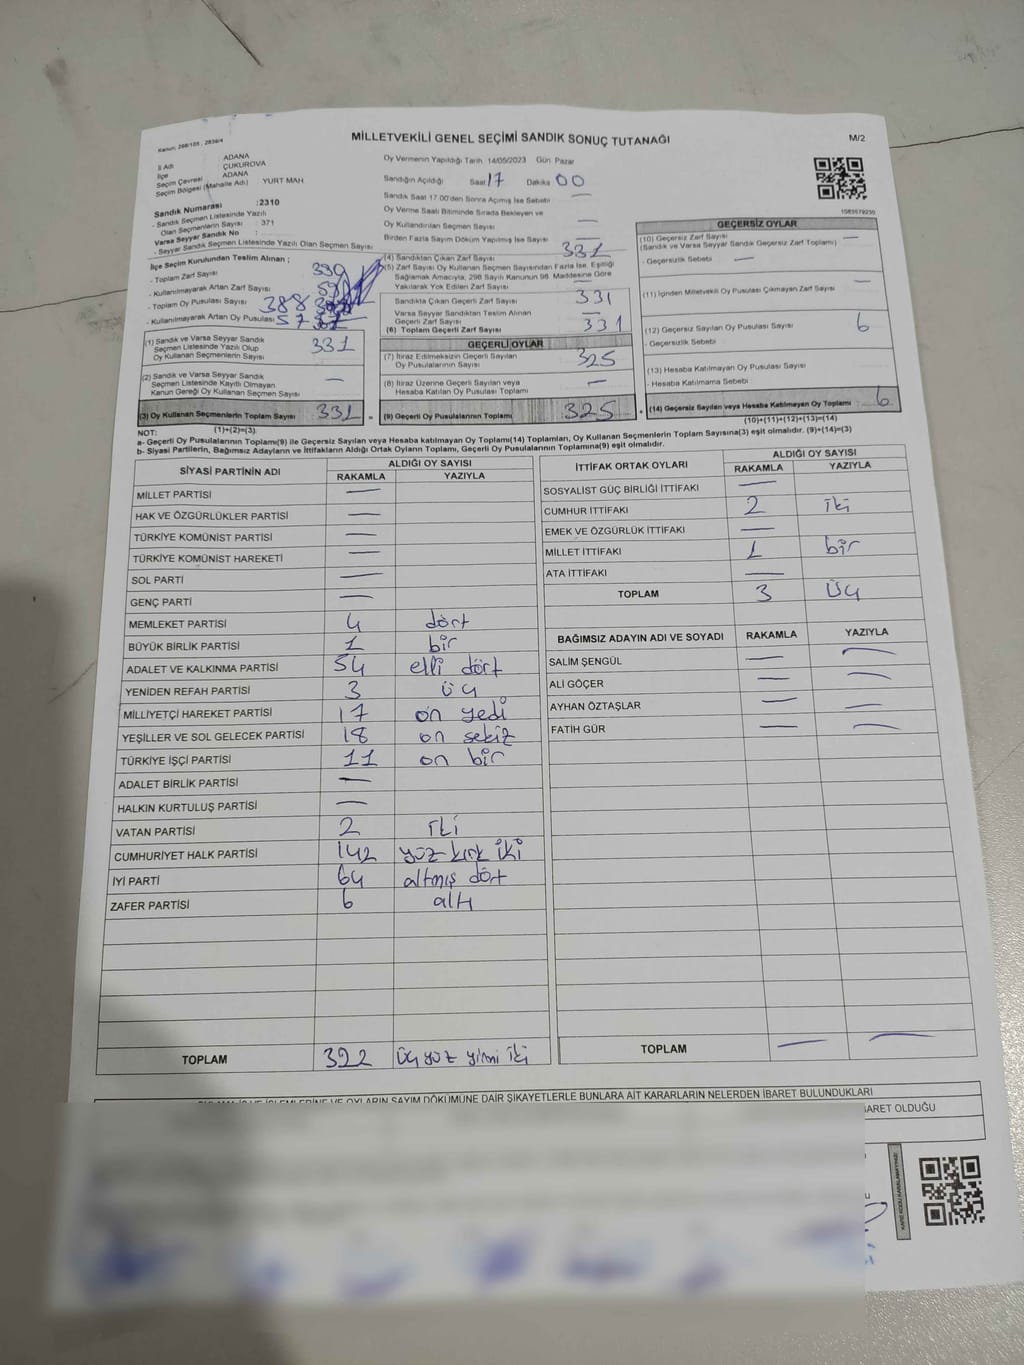 Kanun: 298/105, 2839/4
MİLLETVEKİLİ GENEL SEÇİMİ SANDIK SONUÇ TUTANAĞI
M/2
İl Adı : ADANA
İlçe : ÇUKUROVA
Seçim Çevresi : ADANA
Seçim Bölgesi (Mahalle Adı) : YURT MAH
Oy Vermenin Yapıldığı Tarih: 14/05/2023 Gün: Pazar
Sandığın Açıldığı Saat 17 Dakika 00
Sandık Saat 17.00'den Sonra Açılmış İse Sebebi —
Oy Verme Saati Bitiminde Sırada Bekleyen ve
Oy Kullandırılan Seçmen Sayısı —
Birden Fazla Sayım Döküm Yapılmış İse Sayısı —
Sandık Numarası :2310
- Sandık Seçmen Listesinde Yazılı
Olan Seçmenlerin Sayısı : 371
Varsa Seyyar Sandık No :
- Seyyar Sandık Seçmen Listesinde Yazılı Olan Seçmen Sayısı
İlçe Seçim Kurulundan Teslim Alınan ;
- Toplam Zarf Sayısı
- Kullanılmayarak Artan Zarf Sayısı
- Toplam Oy Pusulası Sayısı 388
- Kullanılmayarak Artan Oy Pusulası 57
(1) Sandık ve Varsa Seyyar Sandık
Seçmen Listesinde Yazılı Olup
Oy Kullanan Seçmenlerin Sayısı 331
(2) Sandık ve Varsa Seyyar Sandık
Seçmen Listesinde Kayıtlı Olmayan
Kanun Gereği Oy Kullanan Seçmen Sayısı —
(3) Oy Kullanan Seçmenlerin Toplam Sayısı 331 =
(1)+(2)=(3)
(4) Sandıktan Çıkan Zarf Sayısı 331
(5) Zarf Sayısı Oy Kullanan Seçmen Sayısından Fazla İse, Eşitliği
Sağlamak Amacıyla, 298 Sayılı Kanunun 98. Maddesine Göre
Yakılarak Yok Edilen Zarf Sayısı —
Sandıkta Çıkan Geçerli Zarf Sayısı 331
Varsa Seyyar Sandıktan Teslim Alınan
Geçerli Zarf Sayısı —
(6) Toplam Geçerli Zarf Sayısı 331
GEÇERLİ OYLAR
(7) İtiraz Edilmeksizin Geçerli Sayılan
Oy Pusulalarının Sayısı 325
(8) İtiraz Üzerine Geçerli Sayılan veya
Hesaba Katılan Oy Pusulası Toplamı —
(9) Geçerli Oy Pusulalarının Toplamı 325 +
1083579230
GEÇERSİZ OYLAR
(10) Geçersiz Zarf Sayısı —
(Sandık ve Varsa Seyyar Sandık Geçersiz Zarf Toplamı)
- Geçersizlik Sebebi
(11) İçinden Milletvekili Oy Pusulası Çıkmayan Zarf Sayısı —
(12) Geçersiz Sayılan Oy Pusulası Sayısı 6
- Geçersizlik Sebebi
(13) Hesaba Katılmayan Oy Pusulası Sayısı
- Hesaba Katılmama Sebebi
(14) Geçersiz Sayılan veya Hesaba Katılmayan Oy Toplamı 6
(10)+(11)+(12)+(13)=(14)
NOT:
a- Geçerli Oy Pusulalarının Toplamı(9) ile Geçersiz Sayılan veya Hesaba katılmayan Oy Toplamı(14) Toplamları, Oy Kullanan Seçmenlerin Toplam Sayısına(3) eşit olmalıdır. (9)+(14)=(3)
b- Siyasi Partilerin, Bağımsız Adayların ve İttifakların Aldığı Ortak Oyların Toplamı, Geçerli Oy Pusulalarının Toplamına(9) eşit olmalıdır.
SİYASİ PARTİNİN ADI ALDIĞI OY SAYISI
RAKAMLA YAZIYLA
MİLLET PARTİSİ —
HAK VE ÖZGÜRLÜKLER PARTİSİ —
TÜRKİYE KOMÜNİST PARTİSİ —
TÜRKİYE KOMÜNİST HAREKETİ —
SOL PARTİ —
GENÇ PARTİ —
MEMLEKET PARTİSİ 4 dört
BÜYÜK BİRLİK PARTİSİ 1 bir
ADALET VE KALKINMA PARTİSİ 54 elli dört
YENİDEN REFAH PARTİSİ 3 üç
MİLLİYETÇİ HAREKET PARTİSİ 17 on yedi
YEŞİLLER VE SOL GELECEK PARTİSİ 18 on sekiz
TÜRKİYE İŞÇİ PARTİSİ 11 on bir
ADALET BİRLİK PARTİSİ —
HALKIN KURTULUŞ PARTİSİ —
VATAN PARTİSİ 2 iki
CUMHURİYET HALK PARTİSİ 142 yüz kırk iki
İYİ PARTİ 64 altmış dört
ZAFER PARTİSİ 6 altı
TOPLAM 322 üç yüz yirmi iki
İTTİFAK ORTAK OYLARI ALDIĞI OY SAYISI
RAKAMLA YAZIYLA
SOSYALİST GÜÇ BİRLİĞİ İTTİFAKI —
CUMHUR İTTİFAKI 2 iki
EMEK VE ÖZGÜRLÜK İTTİFAKI —
MİLLET İTTİFAKI 1 bir
ATA İTTİFAKI —
TOPLAM 3 üç
BAĞIMSIZ ADAYIN ADI VE SOYADI RAKAMLA YAZIYLA
SALİM ŞENGÜL — —
ALİ GÖÇER — —
AYHAN ÖZTAŞLAR — —
FATİH GÜR — —
TOPLAM — —
OYLARIN SAYIM DÖKÜMÜNE DAİR ŞİKAYETLERLE BUNLARA AİT KARARLARIN NELERDEN İBARET BULUNDUKLARI
BARET OLDUĞU